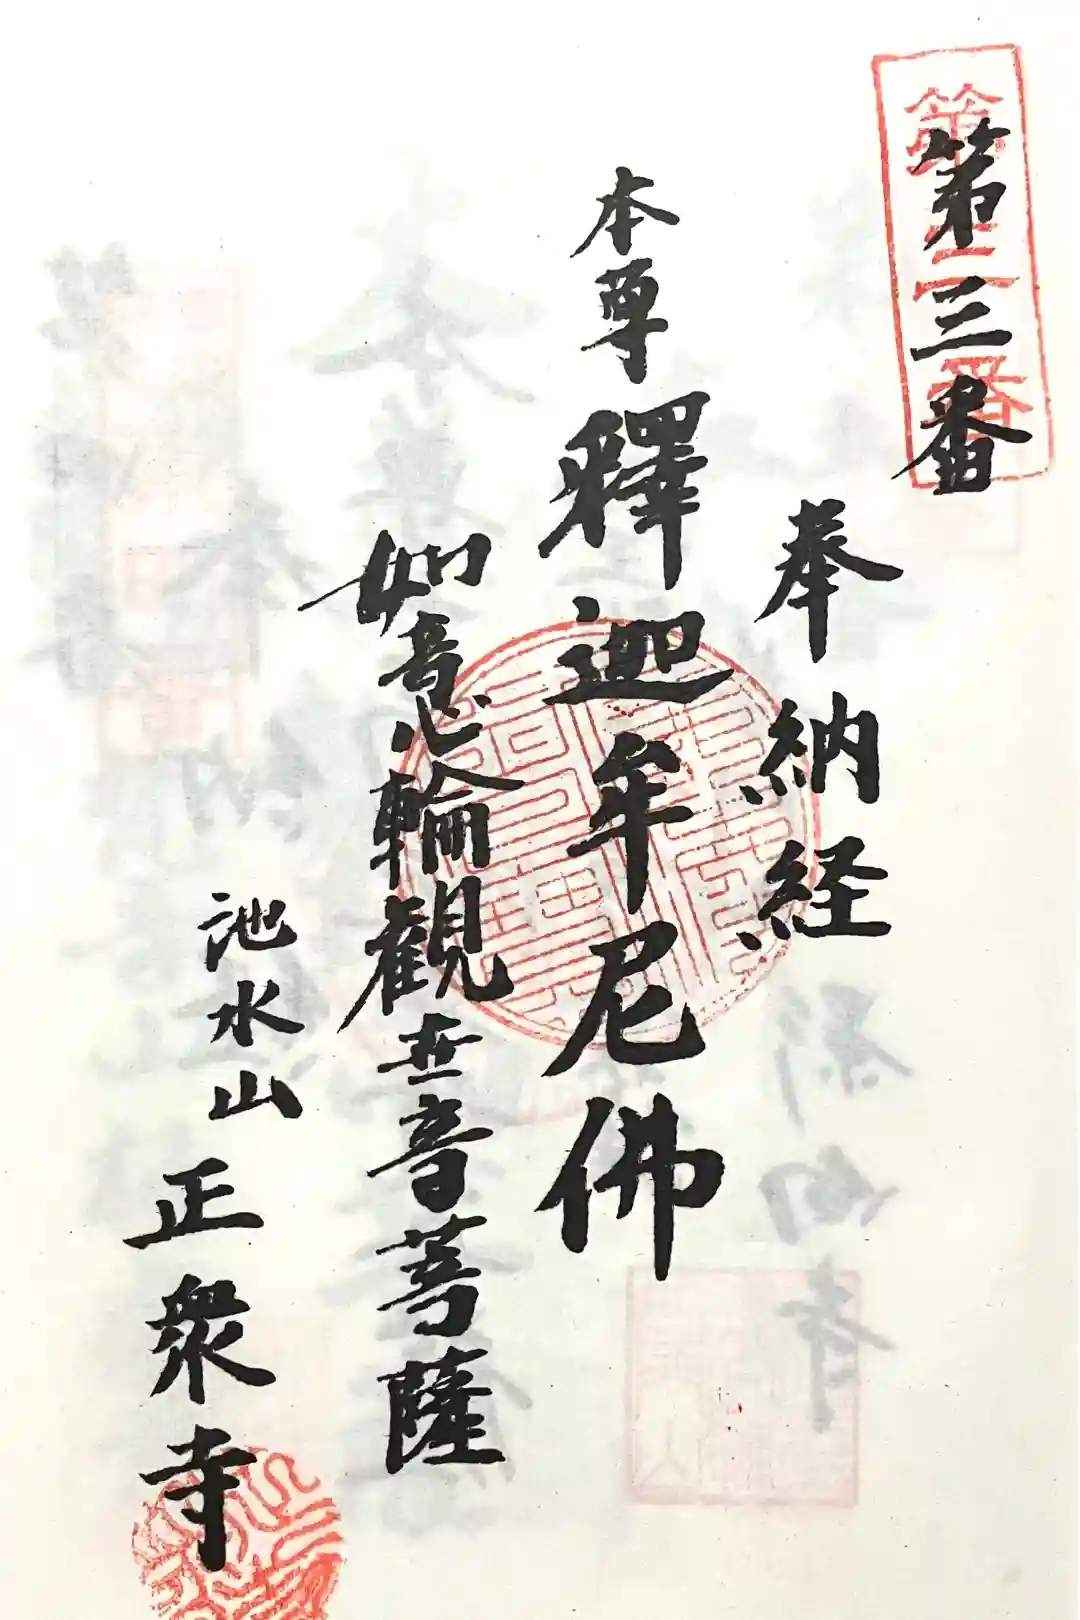 第三番
第三番
奉納経
本尊釋迦牟尼佛
如意輪觀世音菩薩
池水山正衆寺